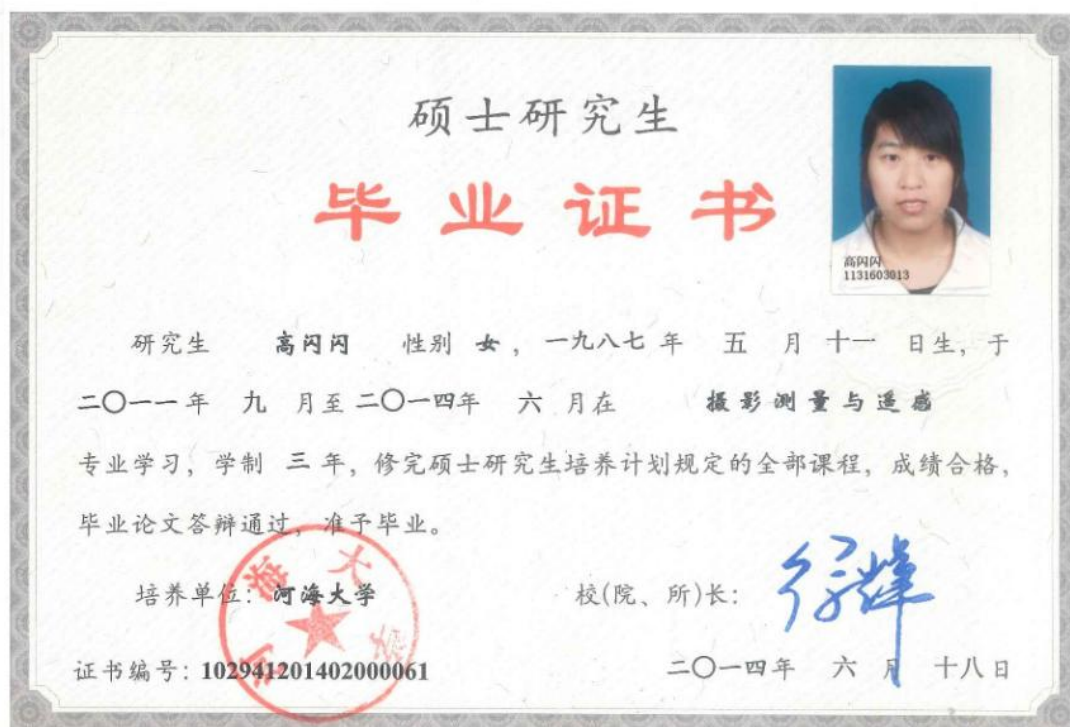 硕士研究生
毕业证书
高闪闪
1131603013
研究生 高闪闪 性别 女，一九八七 年 五 月 十一 日生，于
二〇一一年 九 月至 二〇一四年 六 月在 摄影测量与遥感
专业学习，学制 三 年，修完硕士研究生培养计划规定的全部课程，成绩合格，
毕业论文答辩通过，准予毕业。
培养单位：河海大学 校(院、所)长：徐辉
河海大学
证书编号：102941201402000061 二〇一四年 六 月 十八日